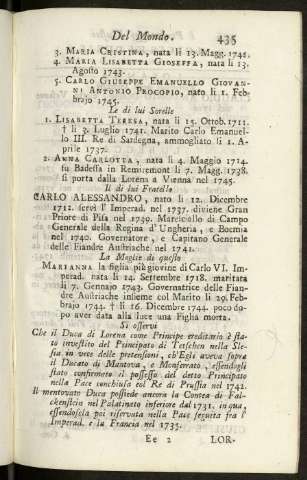 Del Mondo. 435
3. MARIA CRISTINA, nata li 13. Magg. 1742.
4. MARIA LISABETTA GIOSEFFA, nata li 13.
Agosto 1743.
5. CARLO GIUSEPPE EMANUELLO GIOVAN-
NI ANTONIO PROCOPIO, nato li 1. Feb-
brajo 1745.
Le di lui Sorelle
1. LISABETTA TERESA, nata li 15. Ottob. 1711.
† li 3. Luglio 1741. Marito Carlo Emanuel-
lo III. Re di Sardegna, ammogliato li 1. A-
prile 1737.
2. ANNA CARLOTTA, nata li 4. Maggio 1714.
fu Badessa in Remiremont li 7. Magg. 1738.
si porta dalla Lorena a Vienna nel 1745.
Il di lui Fratello
CARLO ALESSANDRO, nato li 12. Dicembre
1712. servì l'Imperad. nel 1737. diviene Gran
Priore di Pisa nel 1739. Maresciollo di Campo
Generale della Regina d'Ungheria, e Boemia
nel 1740. Governatore, e Capitano Generale
delle Fiandre Austriache nel 1741.
La Moglie di questo
MARIANNA la figlia più giovine di Carlo VI. Im-
perad. nata li 14. Settembre 1718. maritata
li 7. Gennajo 1743. Governatrice delle Fian-
dre Austriache insieme col Marito li 29. Feb-
brajo 1744. † li 16. Dicembre 1744. poco do-
po aver data alla luce una Figlia morta.
Si osservi
Che il Duca di Lorena come Principe ereditario è sta-
to investito del Principato di Tetschen nella Sle-
sia in vece delle pretensioni, ch'Egli aveva sopra
il Ducato di Mantova, e Monferrato, essendogli
stato confirmato il possesso del detto Principato
nella Pace conchiusa col Re di Prussia nel 1742.
Il mentovato Duca possiede ancora la Contea di Fal-
ckenstein nel Palatinato inferiore dal 1731. in qua,
essendosela poi riservata nella Pace seguita fra l'
Imperad. e la Francia nel 1735.
Ee 2 LOR-